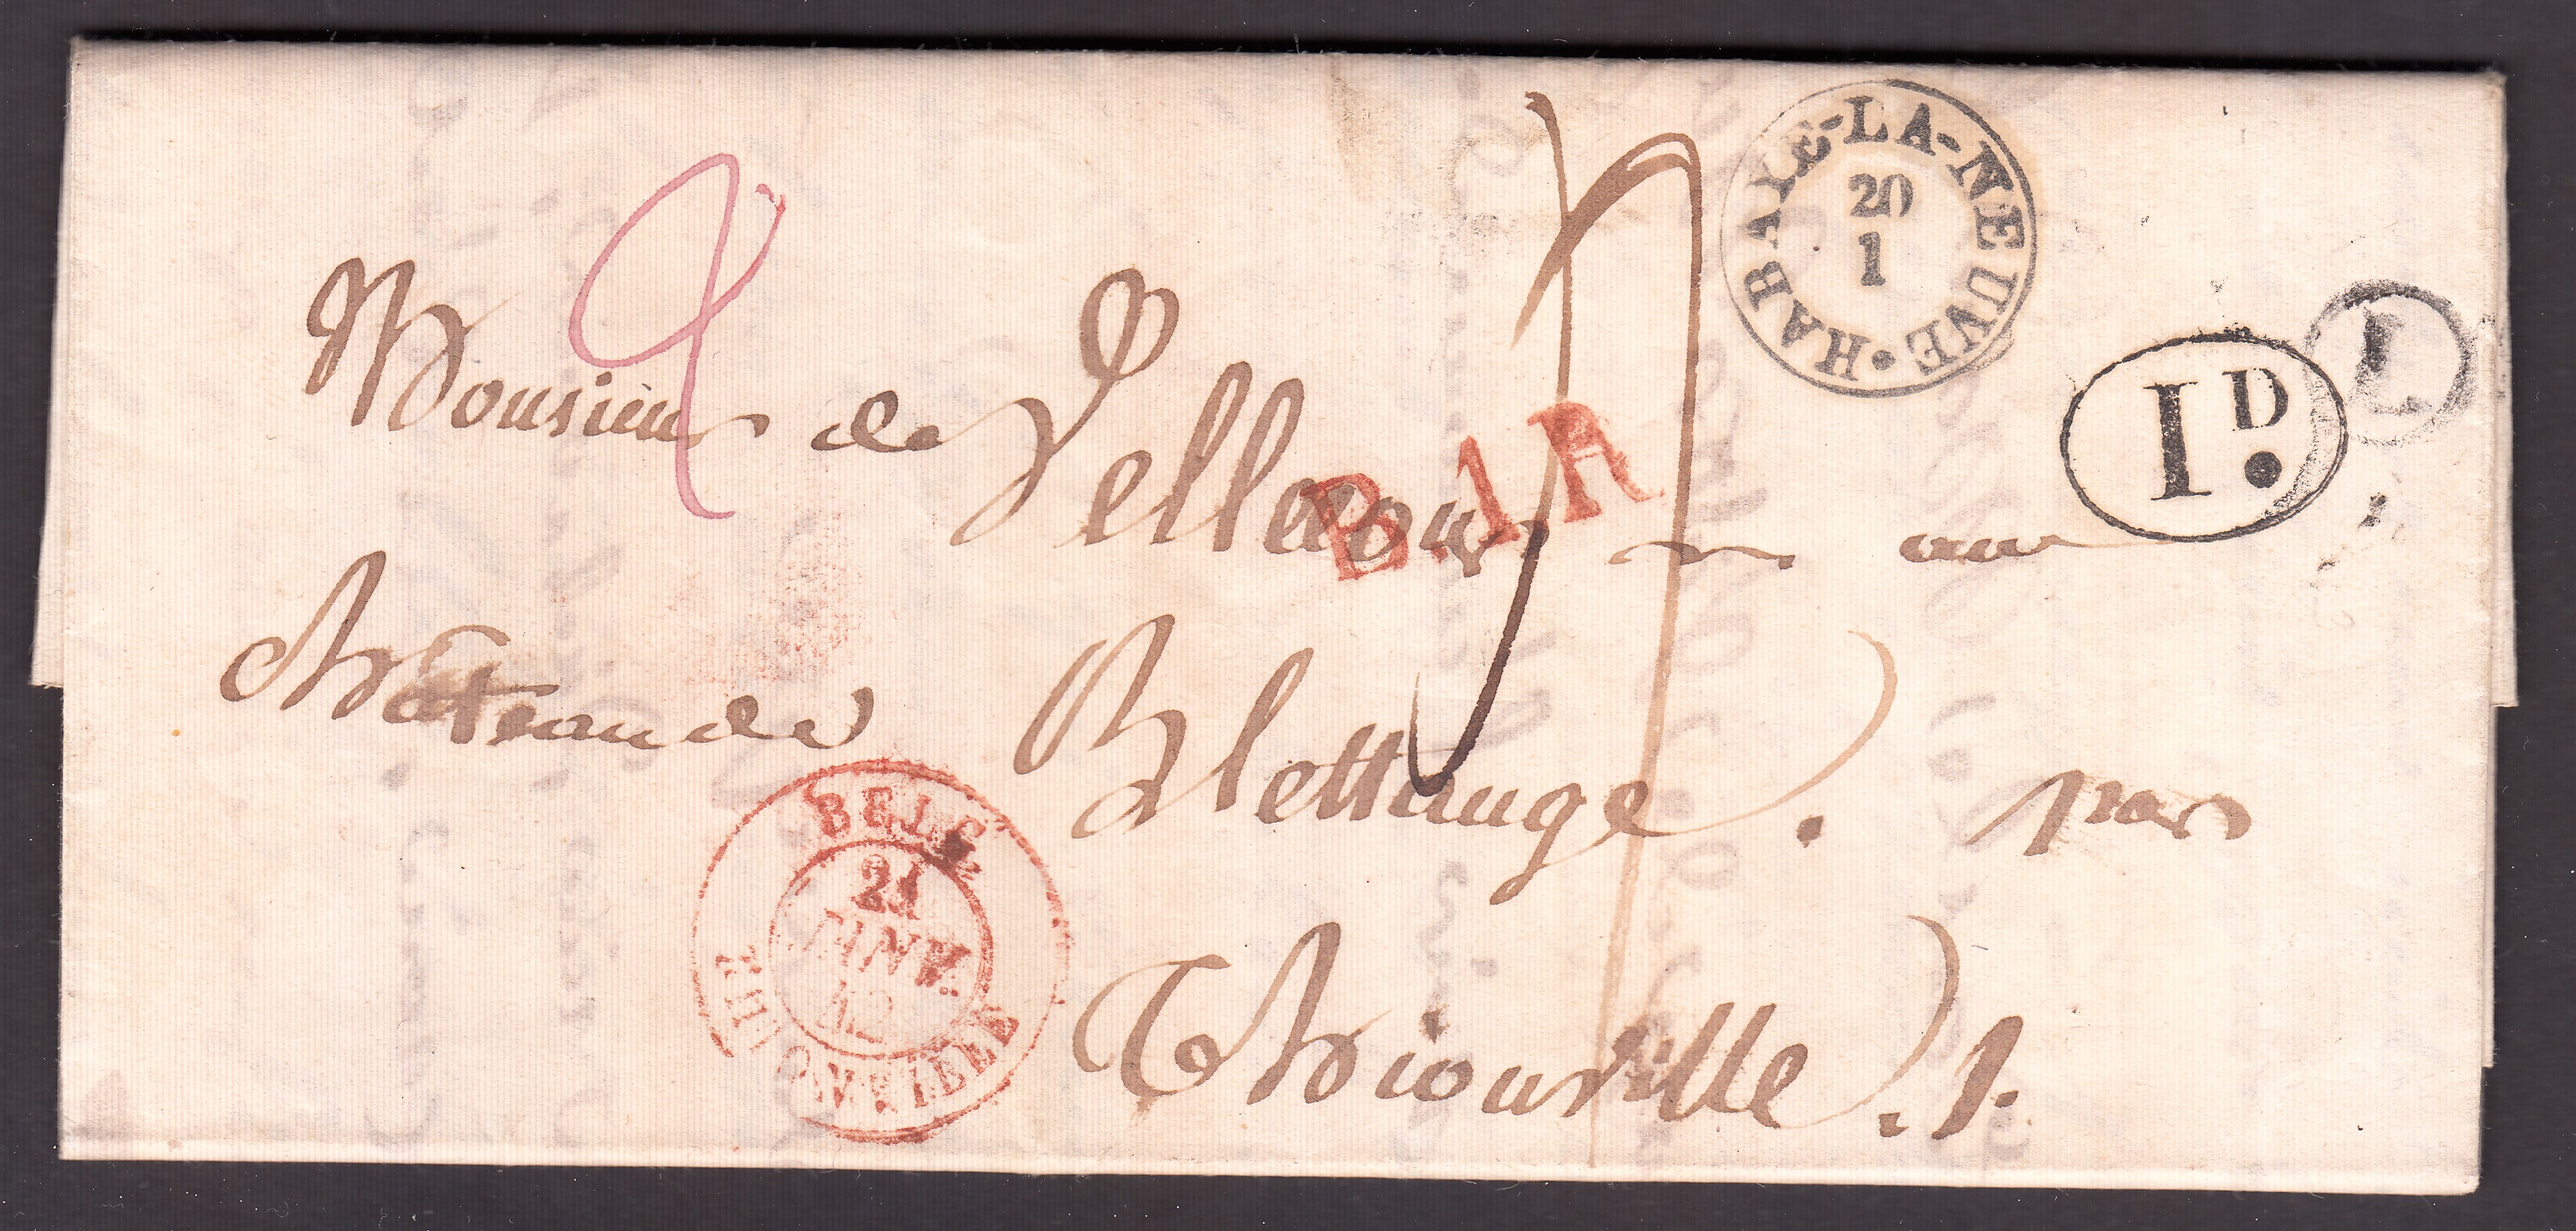 HABAYE-LA-NEUVE
20
1
L
1D.
B.1.R
Monsieur de Vellecour au
château de Blettange. par
Thionville.
BELG.
21
JANV.
42
THIONVILLE